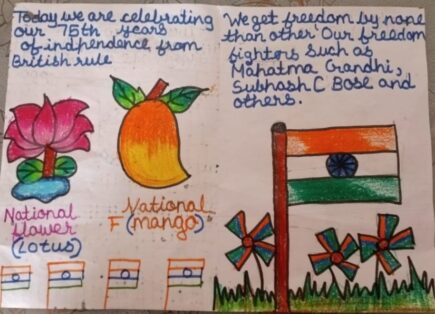 Today we are celebrating
our 75th years
of independence from
British rule
National
flower
(lotus)
National
F (mango)
We get freedom by none
than other Our freedom
fighters such as
Mahatma Gandhi,
Subhash C Bose and
others.